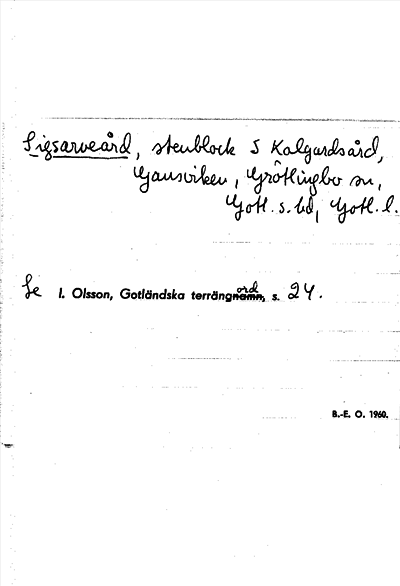 Sigsarveård, stenblock S Kalgardsård,
Gansviken, Grötlingbo sn,
Gotl. s. hd, Gotl. l.
Se I. Olsson, Gotländska terrängnamn, ord s. 24.
B.-E. O. 1960.